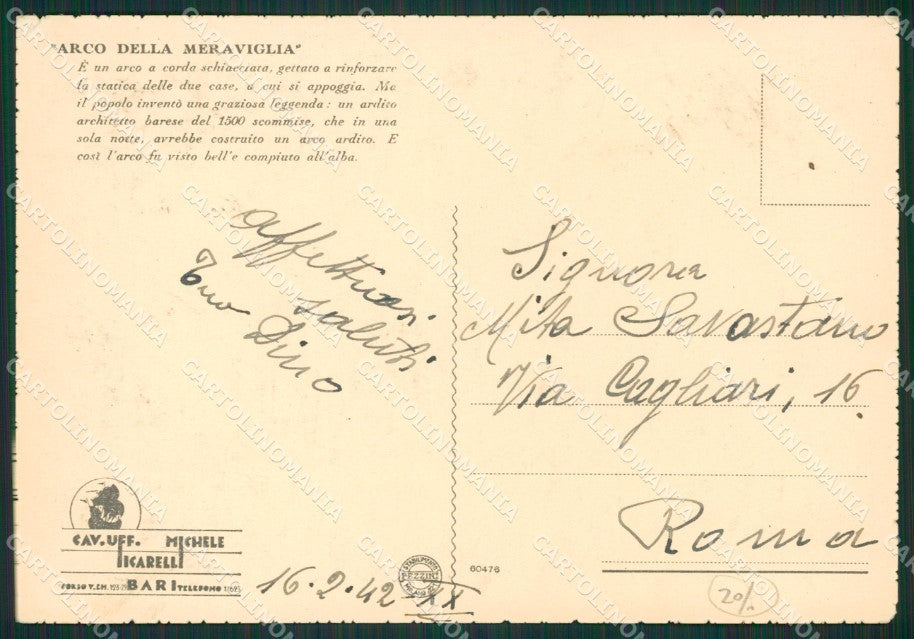 "ARCO DELLA MERAVIGLIA"
È un arco a corda schiacciata, gettato a rinforzare
la statica delle due case, a cui si appoggia. Ma
il popolo inventò una graziosa leggenda: un ardito
architetto barese del 1500 scommise, che in una
sola notte, avrebbe costruito un arco ardito. E
così l'arco fu visto bell'e compiuto all'alba.
Affettuosi
saluti
Tuo
Dino
Signora
Mita Savastano
Via Cagliari, 16
Roma
CAV. UFF. MICHELE
PICARELLI
BARI TELEFONO
16.2.42-XX
60476
20/.
CARTOLINOMANIA